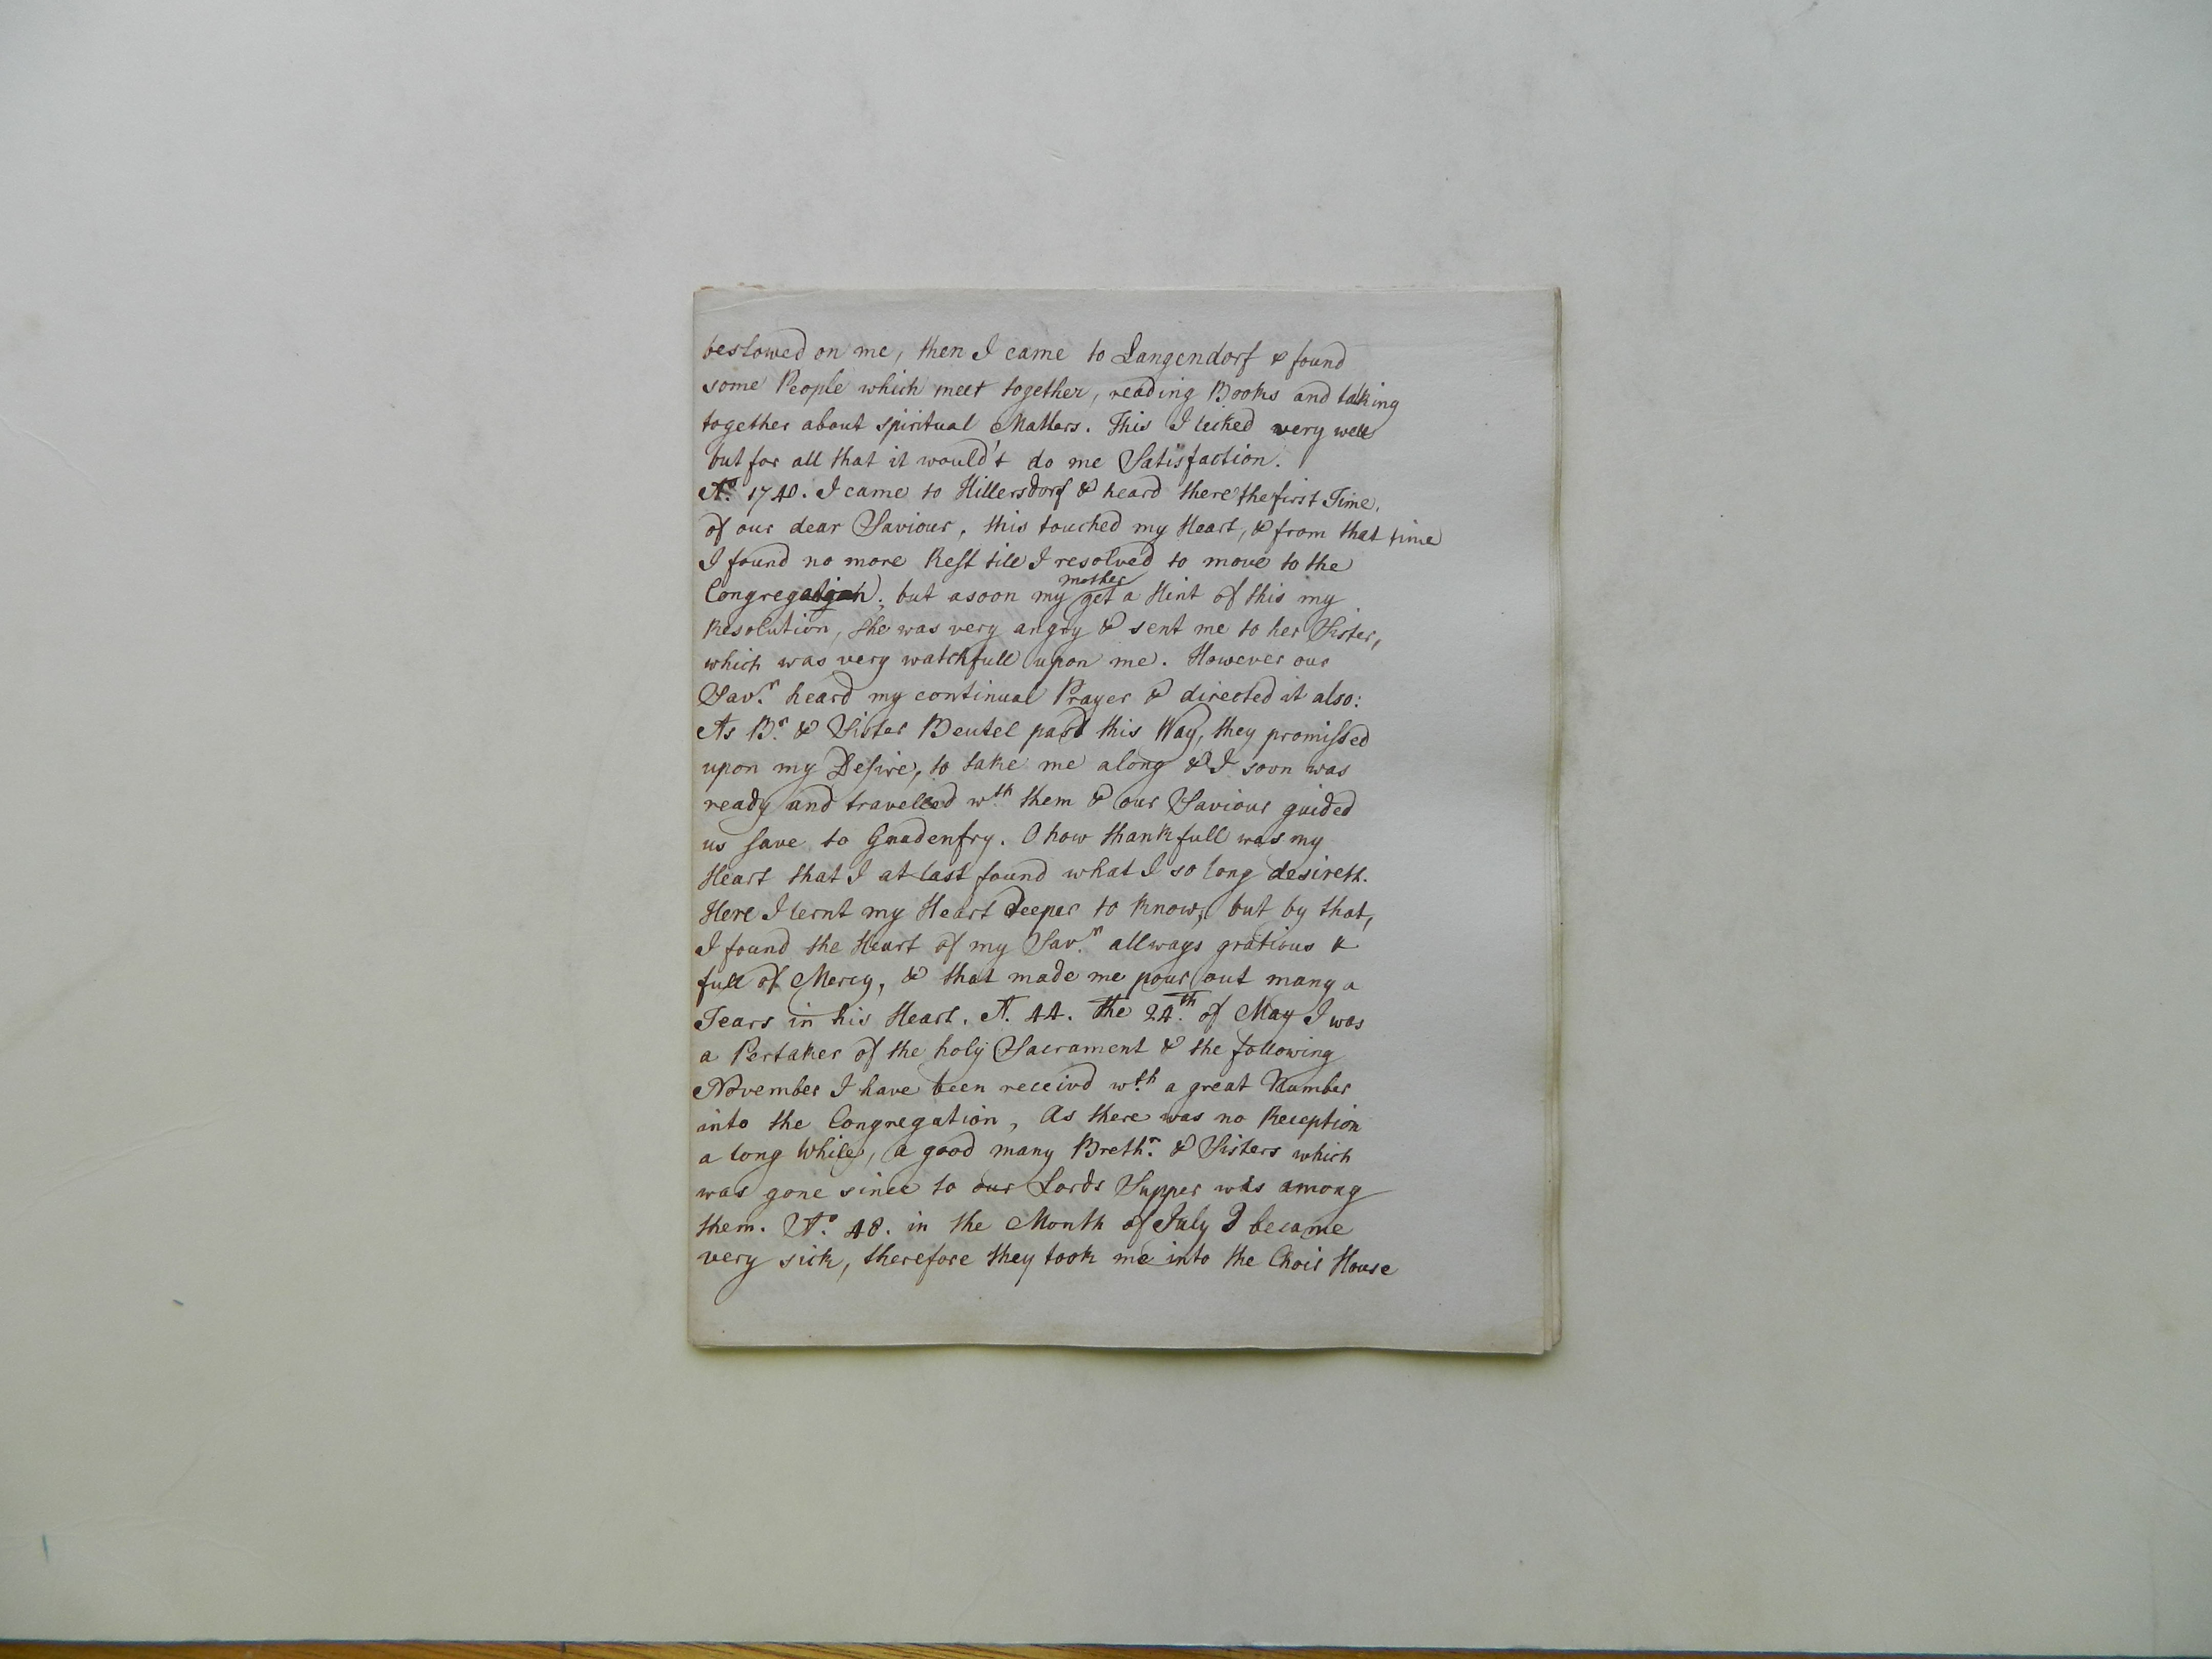 bestowed on me, then I came to Langendorf & found
some People which meet together, reading Books and talking
together about spiritual Matters. This I leiked very well
but for all that it would't do me Satisfaction.
Aº. 1740. I came to Hillersdorf & heard there the first Time,
of our dear Saviour, this touched my Heart, & from that time
I found no more Rest till I resolved to move to the
Congregation; but asoon my mother get a Hint of this my
Resolution, she was very angry & sent me to her Sister,
which was very watchfull upon me. However our
Sav.r heard my continual Prayer & directed it also:
As Br. & Sister Beutel past this Way, they promissed
upon my Desire, to take me along & I soon was
ready and travelled w.th them & our Saviour guided
us save to Gnadenfry. O how thankfull was my
Heart that I at last found what I so long desireth.
Here I lernt my Heart deeper to know, but by that,
I found the Heart of my Sav.r allways gratious &
full of Mercy, & that made me pour out many a
Tears in his Heart. A. 44. the 24.th of May I was
a Pertaker of the holy Sacrament & the following
November I have been receivd w.th a great Number
into the Congregation, As there was no Reception
a long While, a good many Breth.r & Sisters which
was gone since to our Lords Supper was among
them. Aº. 48. in the Month of July I became
very sick, therefore they took me into the Choir House